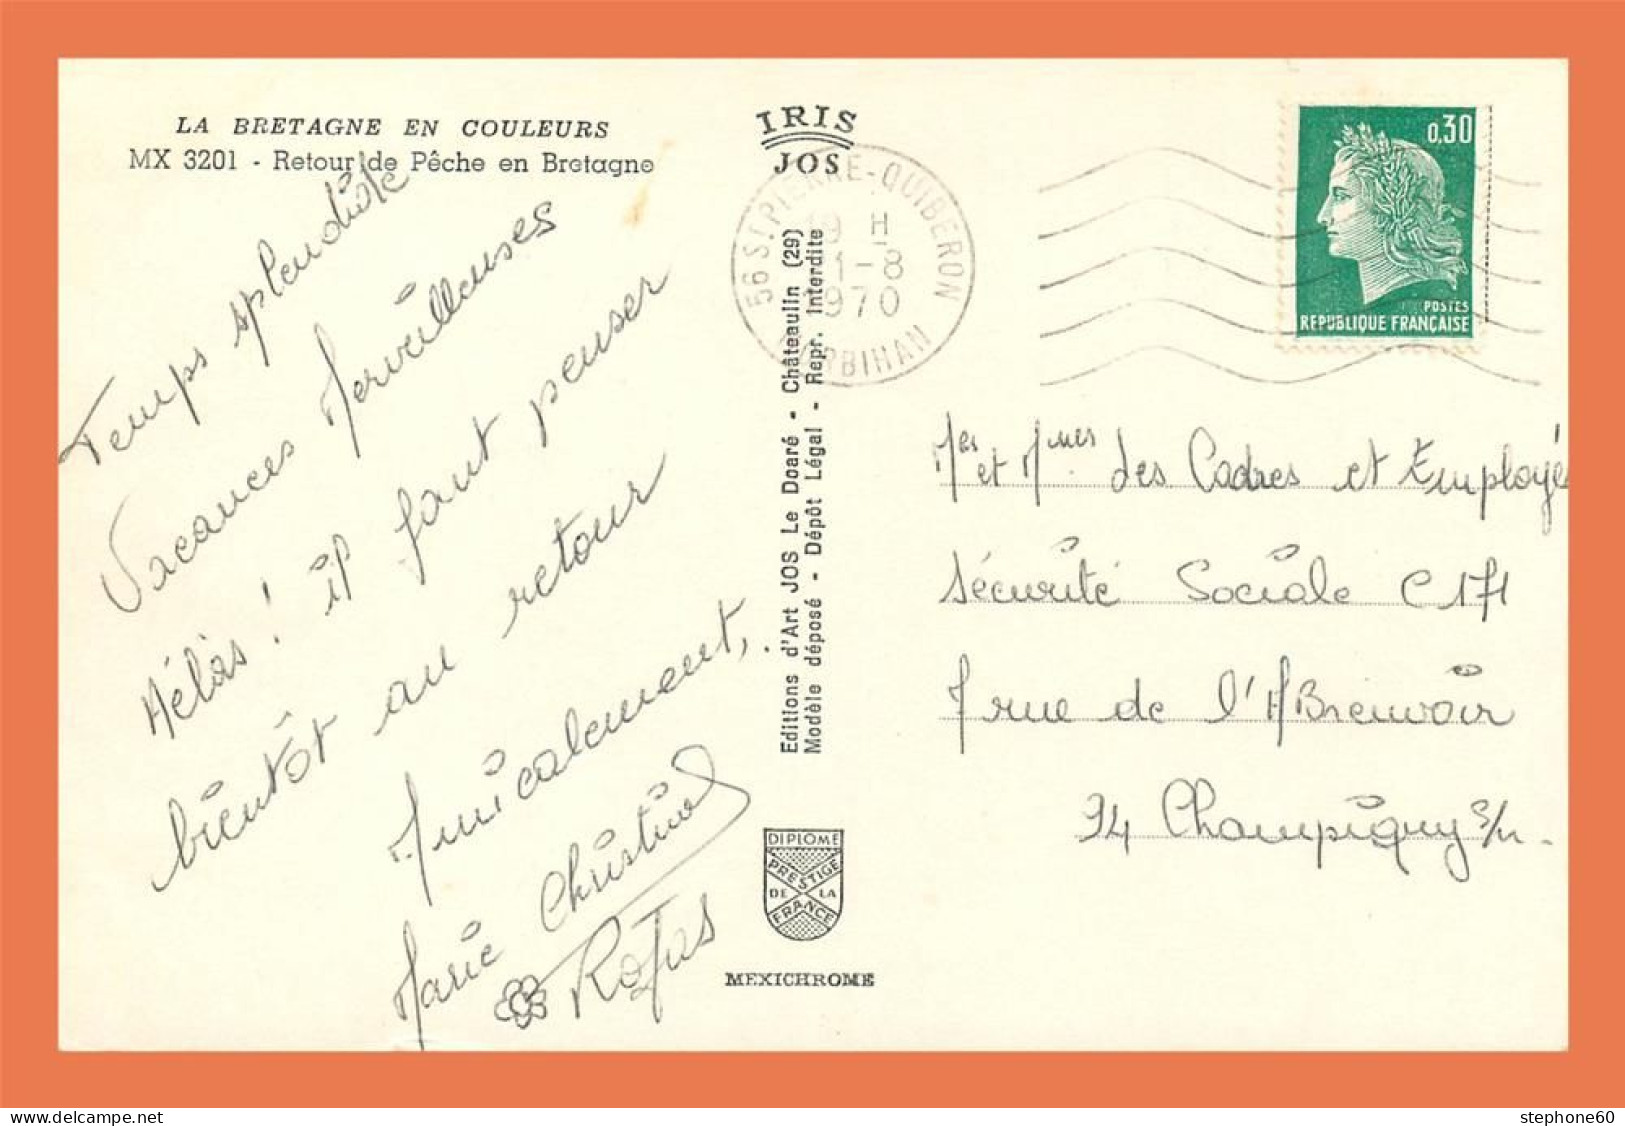 LA BRETAGNE EN COULEURS
MX 3201 - Retour de Pêche en Bretagne
Temps splendide
Vacances Merveilleuses
Hélas! il faut penser
bientôt au retour
Amicalement,
Marie Christine
Rojas
IRIS
JOS
56 ST. PIERRE-QUIBERON
19 H
1-8
1970
MORBIHAN
Editions d'Art JOS Le Doaré - Châteaulin (29)
Modèle déposé - Dépôt Légal - Repr. Interdite
DIPLOME
PRESTIGE
DE LA
FRANCE
MEXICHROME
0,30
POSTES
REPUBLIQUE FRANÇAISE
Mrs et Mmes des Cadres et Employé
Sécurité Sociale C171
7 rue de l'ABreuvoir
94 Champigny s/m.
stephone60